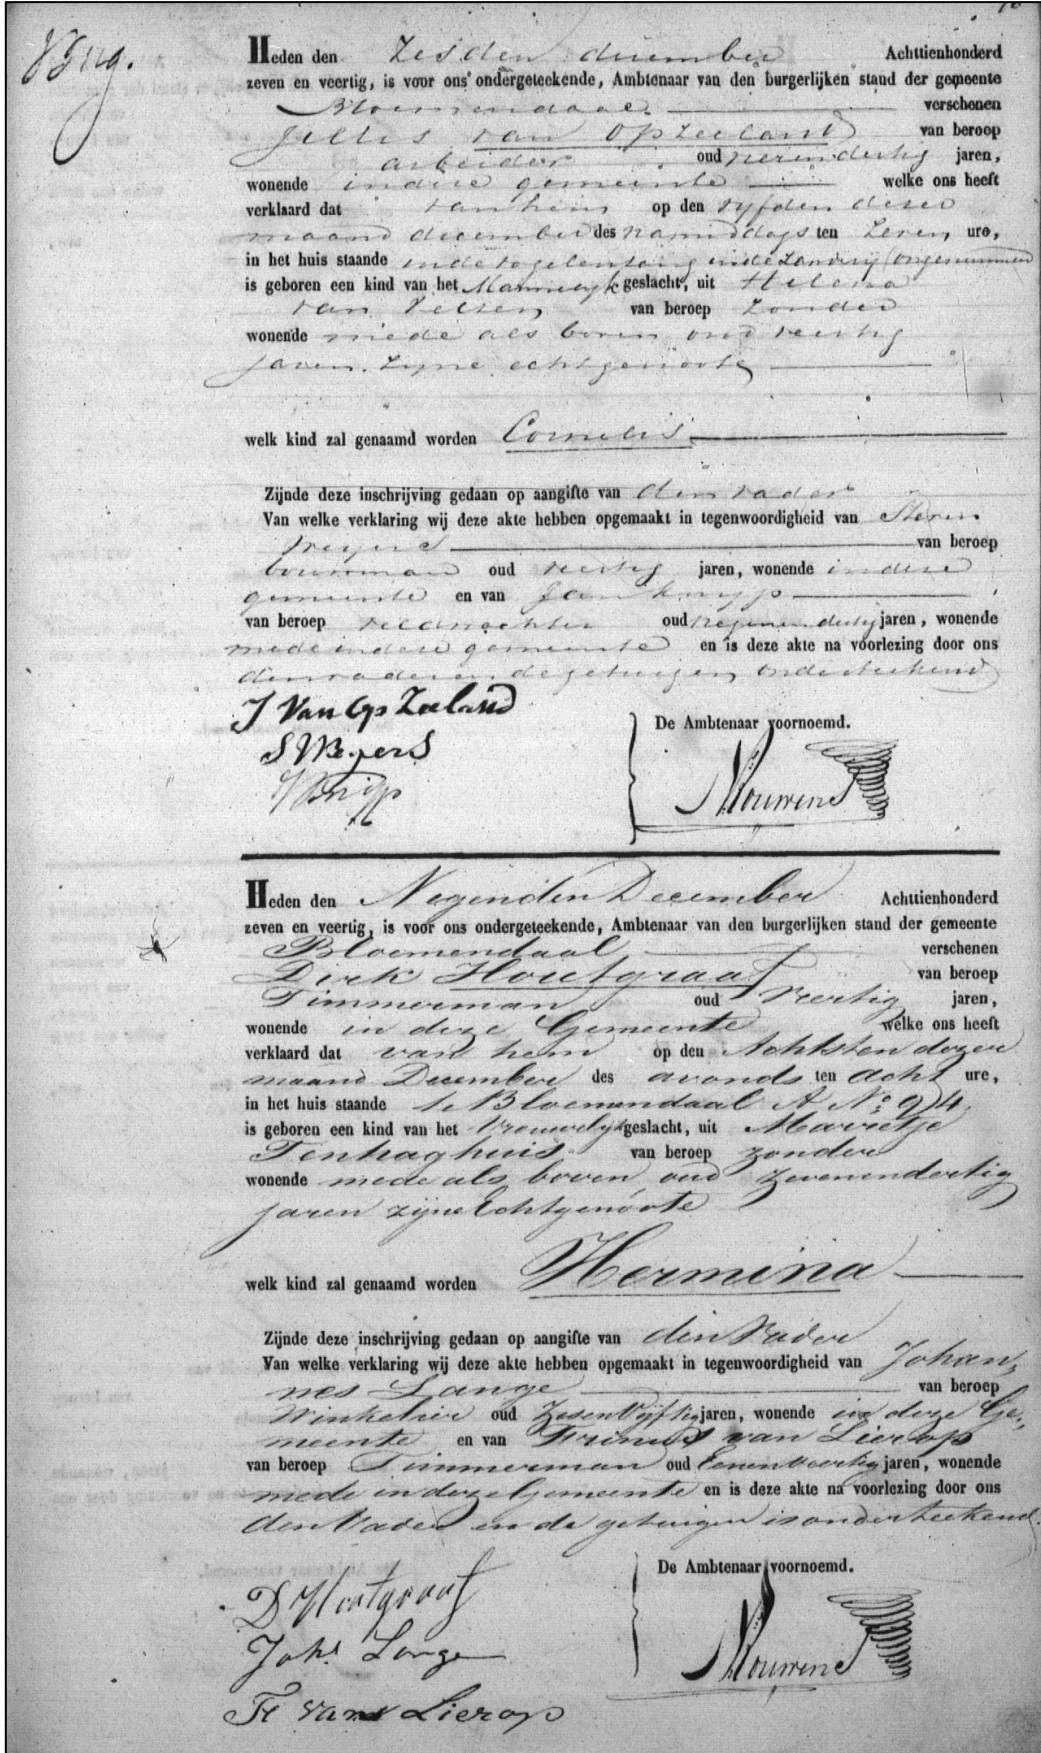 Heden den Zesden december Achttienhonderd
zeven en veertig, is voor ons ondergeteekende, Ambtenaar van den burgerlijken stand der gemeente
Bloemendaal verschenen
Jillis van Opzeeland van beroep
arbeider oud vierendertig jaren,
wonende in deze gemeente welke ons heeft
verklaard dat van hem op den vyfden dezer
maand december des namiddags ten Zeven ure,
in het huis staande in de Vogelenzang in de Zandery Ongenummerd
is geboren een kind van het Mannelyk geslacht, uit Helena
van Velsen van beroep Zonder
wonende mede als boven oud veertig
jaren Zyne echtgenoote
welk kind zal genaamd worden Cornelis
Zijnde deze inschrijving gedaan op aangifte van den vader
Van welke verklaring wij deze akte hebben opgemaakt in tegenwoordigheid van Steven
Meyers van beroep
bouwman oud veertig jaren, wonende in deze
gemeente en van Jan Knyp
van beroep veldwachter oud negenendertig jaren, wonende
mede in deze gemeente en is deze akte na voorlezing door ons
den vader en de getuigen onderteekend
J Van Op Zeeland
De Ambtenaar voornoemd.
S Meyers
J Knijp
Heden den Negenden December Achttienhonderd
zeven en veertig, is voor ons ondergeteekende, Ambtenaar van den burgerlijken stand der gemeente
Bloemendaal verschenen
Dirk Houtgraaf van beroep
Timmerman oud Veertig jaren,
wonende in deze Gemeente welke ons heeft
verklaard dat van hem op den Achtsten dezer
maand December des avonds ten acht ure,
in het huis staande te Bloemendaal A No. 94
is geboren een kind van het Vrouwelyk geslacht, uit Marretje
Tenhaghuis van beroep zonder
wonende mede als boven oud zevenendertig
jaren zijne Echtgenoote
welk kind zal genaamd worden Hermina
Zijnde deze inschrijving gedaan op aangifte van den Vader
Van welke verklaring wij deze akte hebben opgemaakt in tegenwoordigheid van Johan,
nes Lange van beroep
Winkelier oud Zesenvyftig jaren, wonende in deze Ge,
meente en van Frinus van Lierop
van beroep Timmerman oud Eenenveertig jaren, wonende
mede in deze Gemeente en is deze akte na voorlezing door ons
den Vader en de getuigen is onderteekend.
De Ambtenaar voornoemd.
D Houtgraaf
Johs Lange
Fr van Lierop